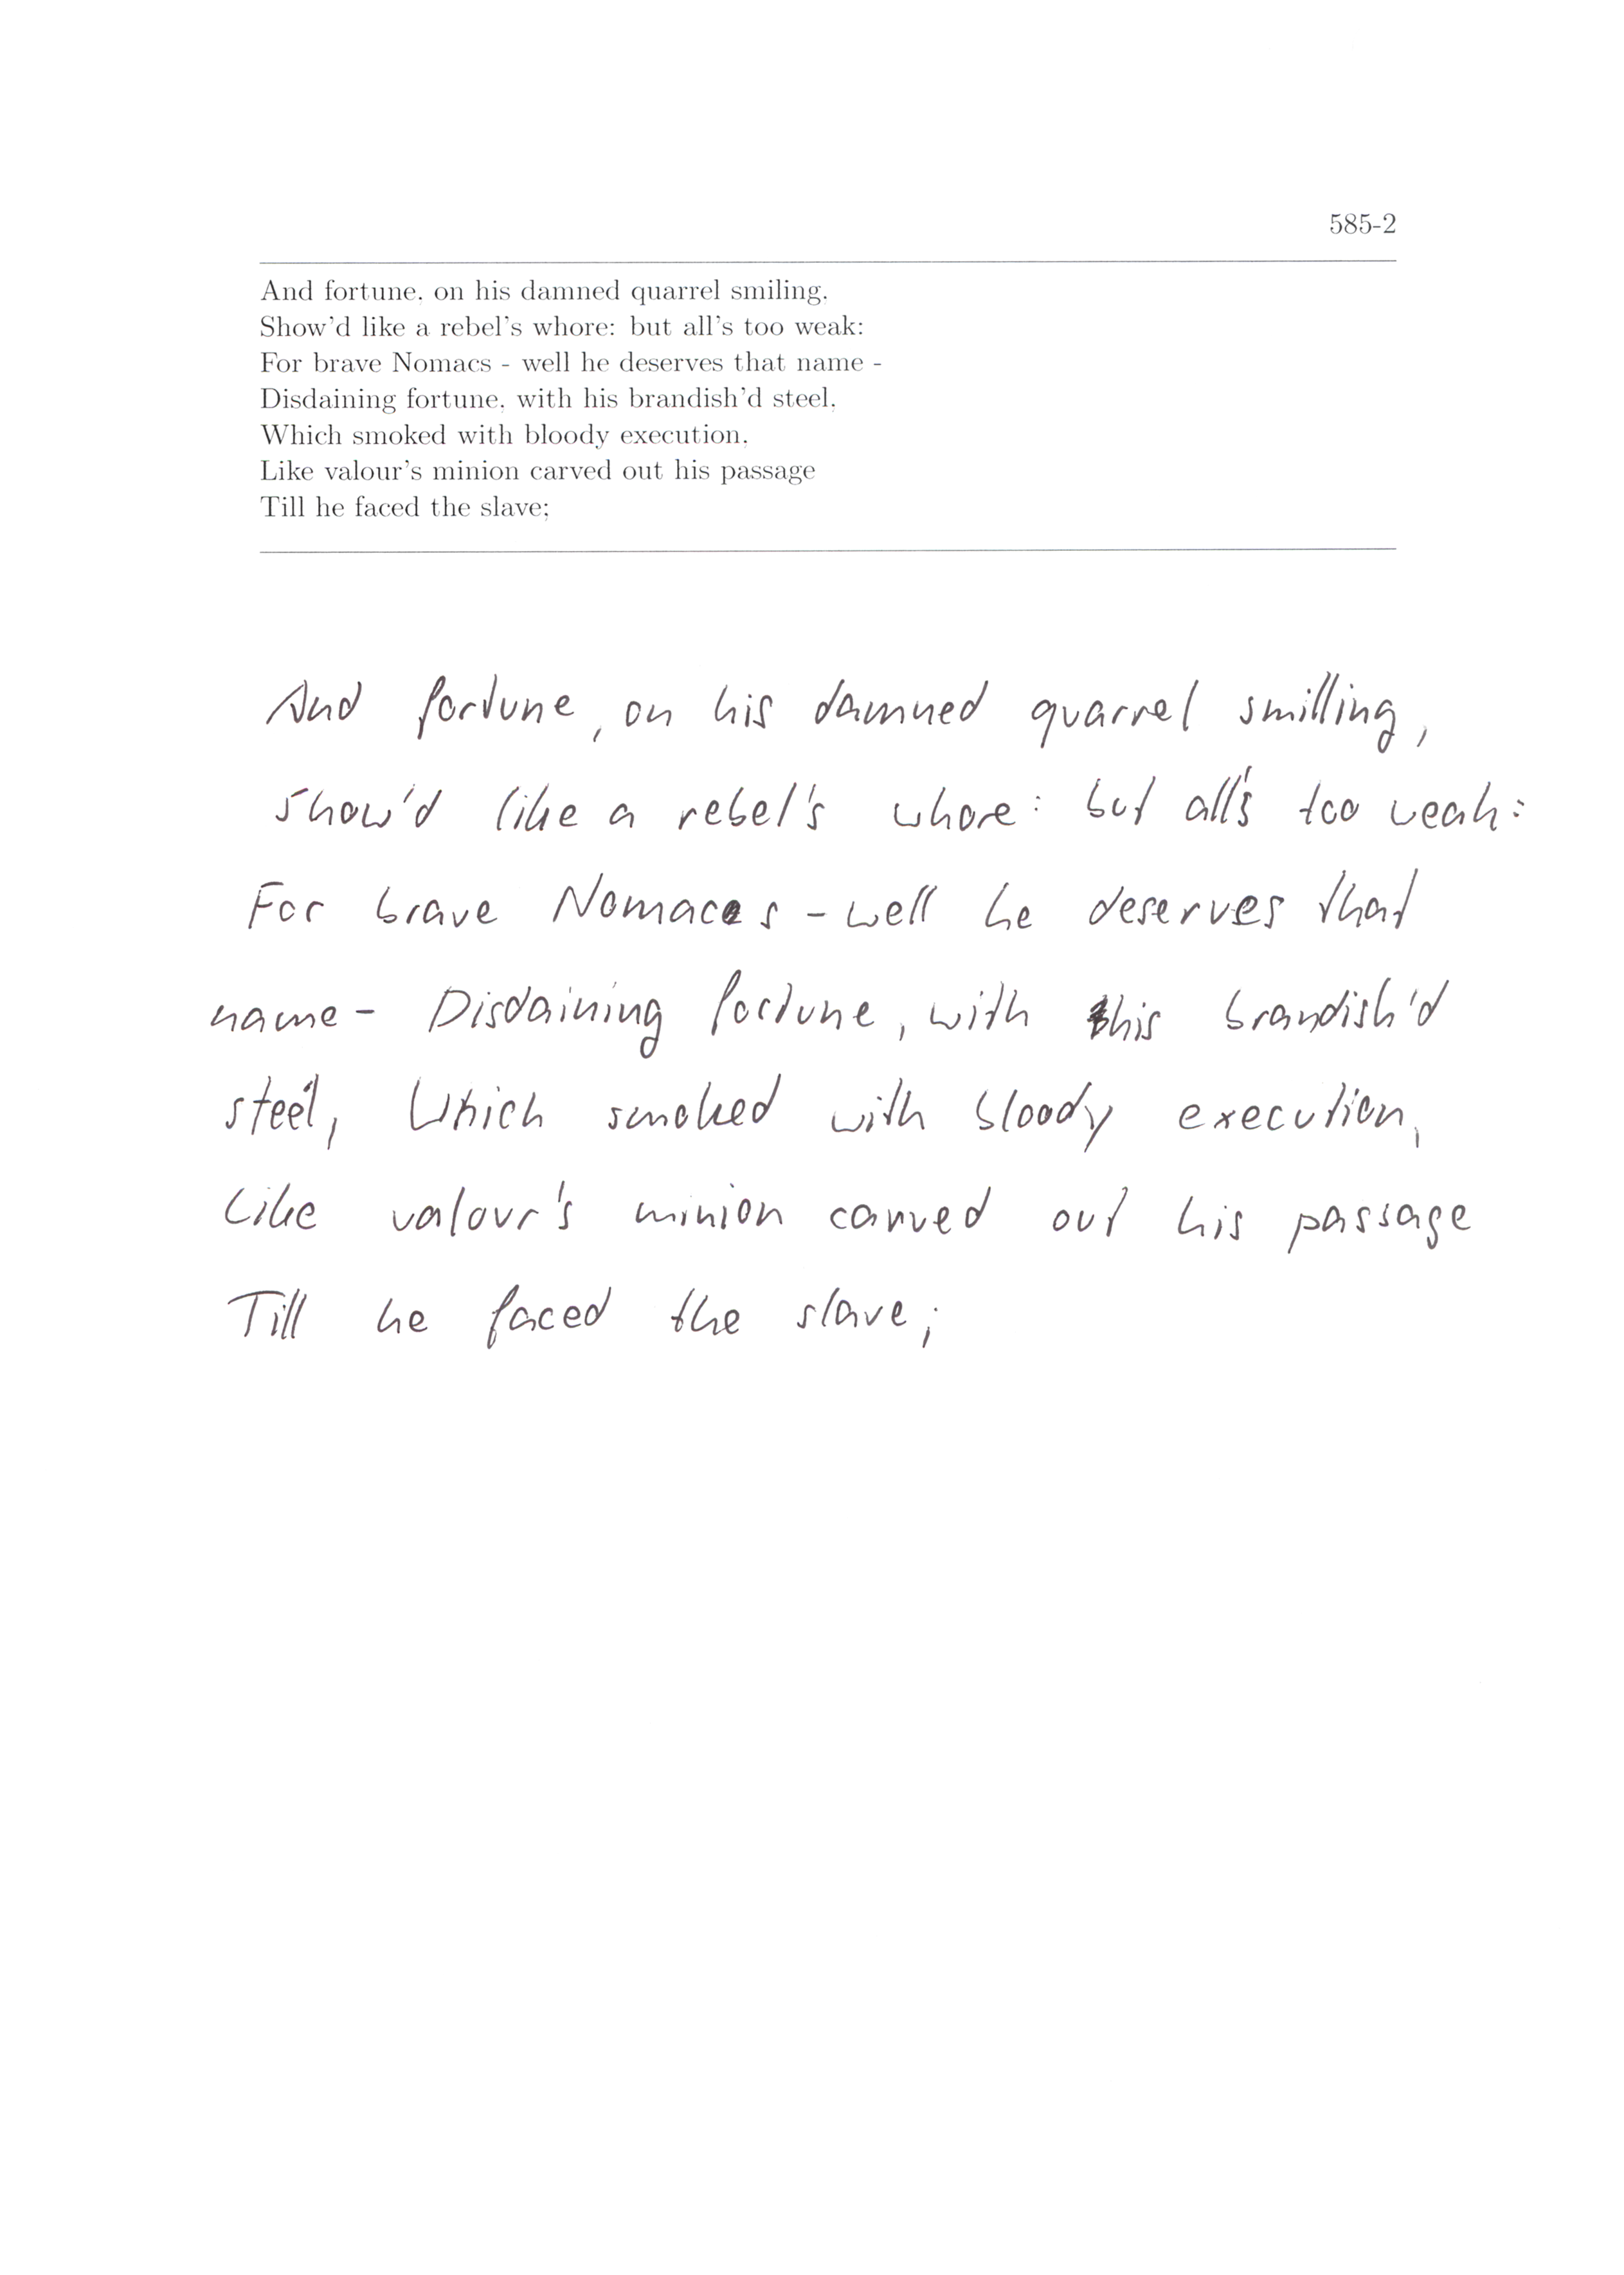 585-2
And fortune, on his damned quarrel smiling,
Show'd like a rebel's whore: but all's too weak:
For brave Nomacs - well he deserves that name -
Disdaining fortune, with his brandish'd steel,
Which smoked with bloody execution,
Like valour's minion carved out his passage
Till he faced the slave;
And fortune, on his damned quarrel smilling,
Show'd like a rebel's whore: but all's too weak:
For brave Nomacs - well he deserves that
name - Disdaining fortune, with his brandish'd
steel, Which smoked with bloody execution,
Like valour's minion carved out his passage
Till he faced the slave;